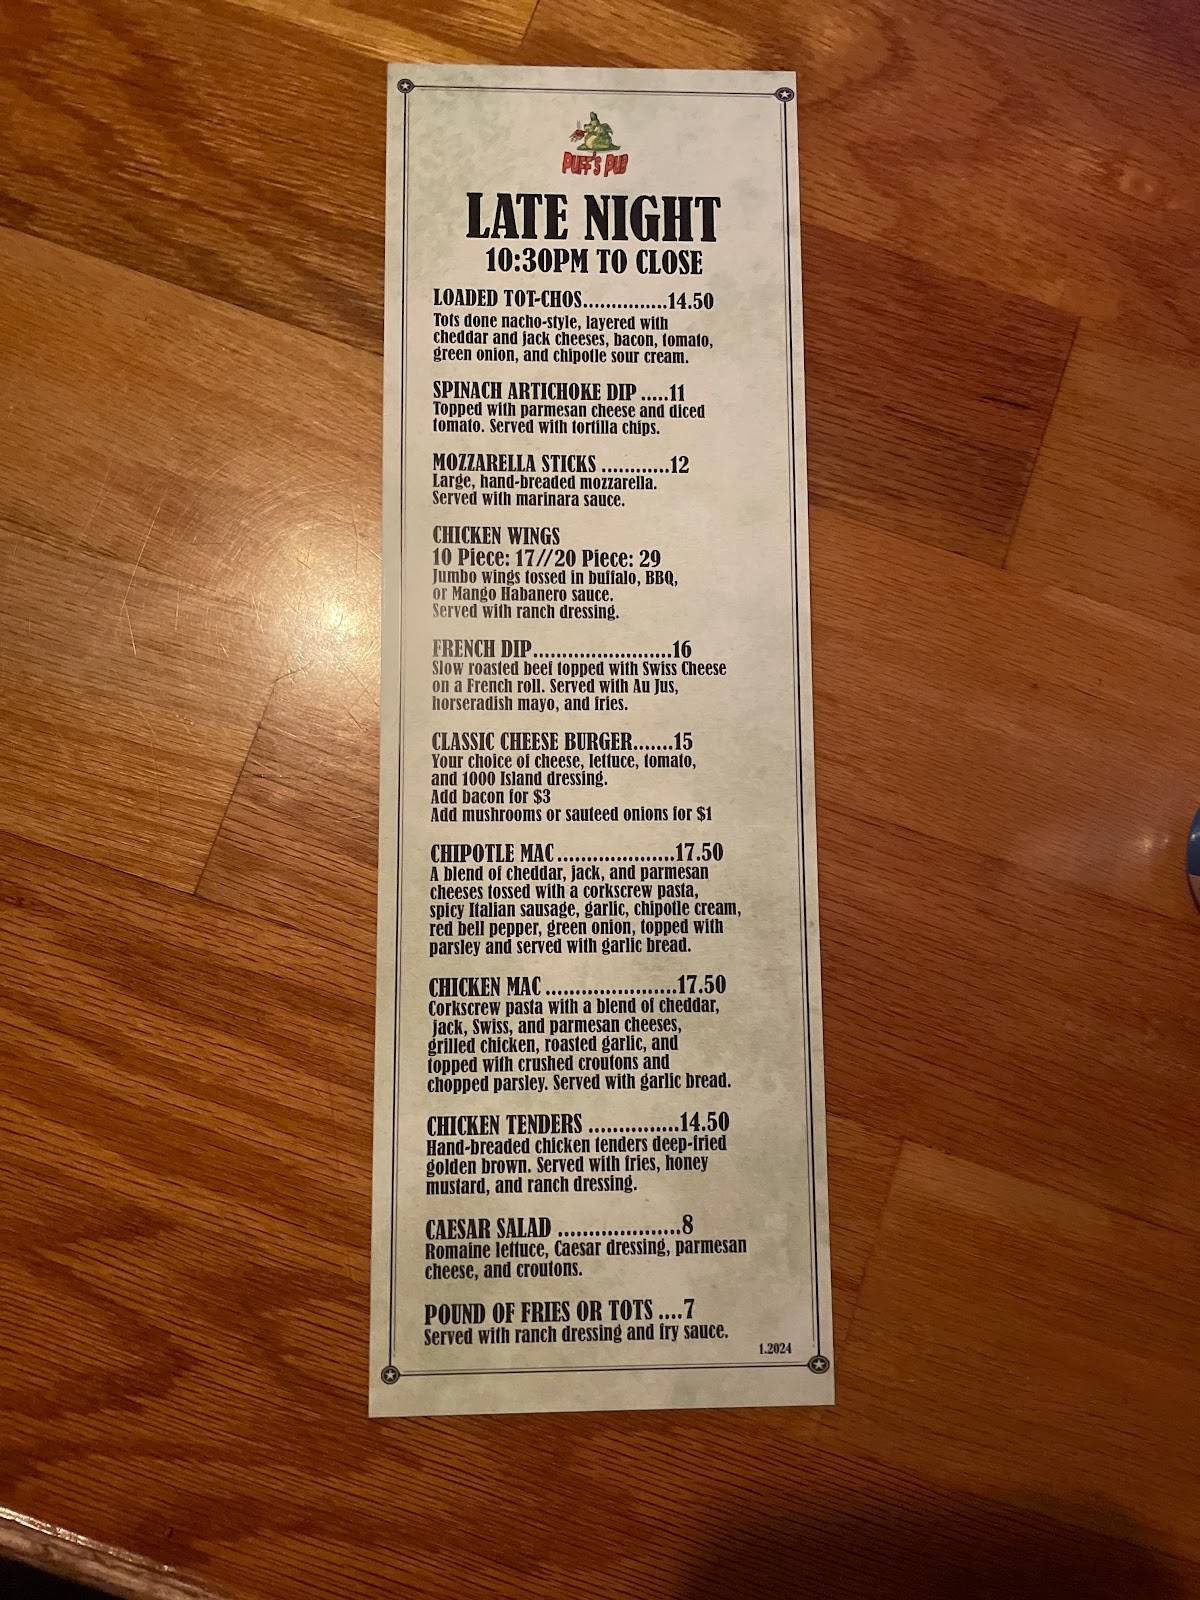 PUFF'S PUB
LATE NIGHT
10:30PM TO CLOSE
LOADED TOT-CHOS...............14.50
Tots done nacho-style, layered with
cheddar and jack cheeses, bacon, tomato,
green onion, and chipotle sour cream.
SPINACH ARTICHOKE DIP .....11
Topped with parmesan cheese and diced
tomato. Served with tortilla chips.
MOZZARELLA STICKS ............12
Large, hand-breaded mozzarella.
Served with marinara sauce.
CHICKEN WINGS
10 Piece: 17//20 Piece: 29
Jumbo wings tossed in buffalo, BBQ,
or Mango Habanero sauce.
Served with ranch dressing.
FRENCH DIP........................16
Slow roasted beef topped with Swiss Cheese
on a French roll. Served with Au Jus,
horseradish mayo, and fries.
CLASSIC CHEESE BURGER.......15
Your choice of cheese, lettuce, tomato,
and 1000 Island dressing.
Add bacon for $3
Add mushrooms or sauteed onions for $1
CHIPOTLE MAC....................17.50
A blend of cheddar, jack, and parmesan
cheeses tossed with a corkscrew pasta,
spicy Italian sausage, garlic, chipotle cream,
red bell pepper, green onion, topped with
parsley and served with garlic bread.
CHICKEN MAC ......................17.50
Corkscrew pasta with a blend of cheddar,
jack, Swiss, and parmesan cheeses,
grilled chicken, roasted garlic, and
topped with crushed croutons and
chopped parsley. Served with garlic bread.
CHICKEN TENDERS ...............14.50
Hand-breaded chicken tenders deep-fried
golden brown. Served with fries, honey
mustard, and ranch dressing.
CAESAR SALAD ....................8
Romaine lettuce, Caesar dressing, parmesan
cheese, and croutons.
POUND OF FRIES OR TOTS ....7
Served with ranch dressing and fry sauce.
1.2024